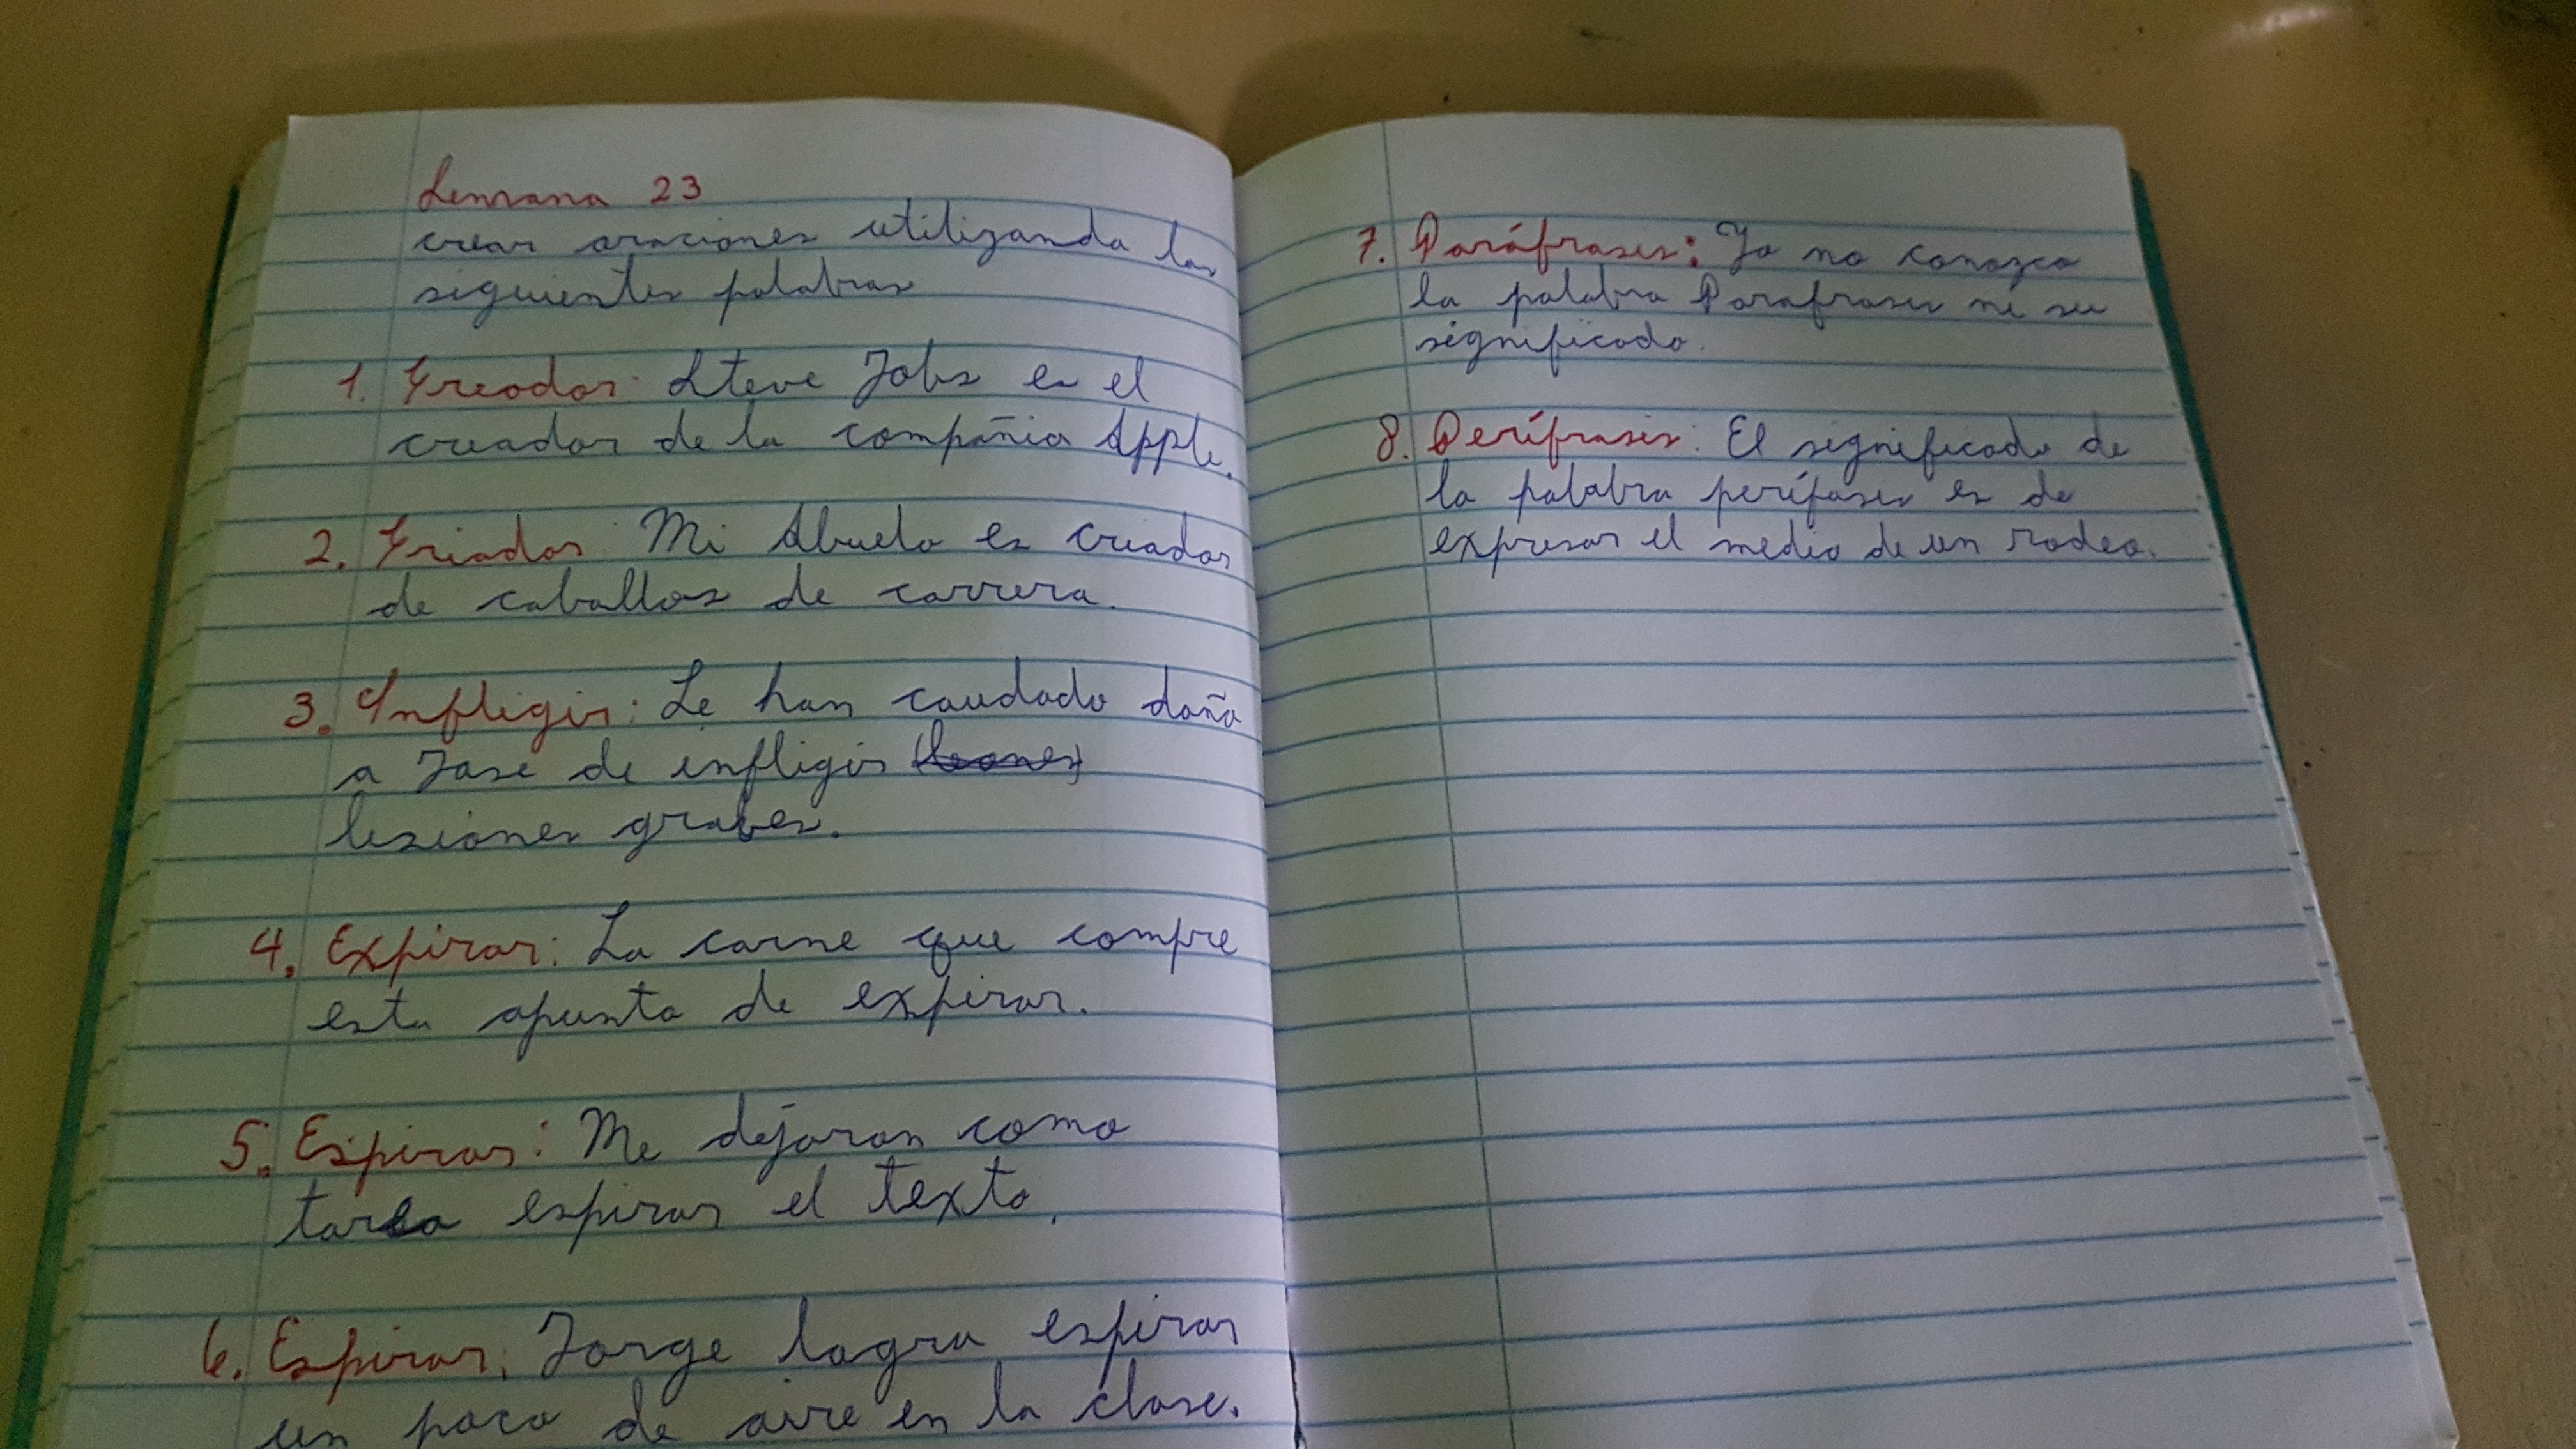 Semana 23
crear oraciones utilizando las
siguientes palabras
1. Creador: Steve Jobs es el
creador de la compañia Apple.
2. Criador: Mi Abuelo es criador
de caballos de carrera.
3. Infligir: Le han caudado daño
a Jose de infligir
lesiones graves.
4. Expirar: La carne que compre
esta apunto de expirar.
5. Espirar: Me dejaron como
tarea espirar el texto.
6. Espirar: Jorge logra espirar
un poco de aire en la clase.
7. Paráfrases: Yo no conozco
la palabra Parafrases ni su
significado.
8. Perífrases: El significado de
la palabra perífases es de
expresar el medio de un rodeo.